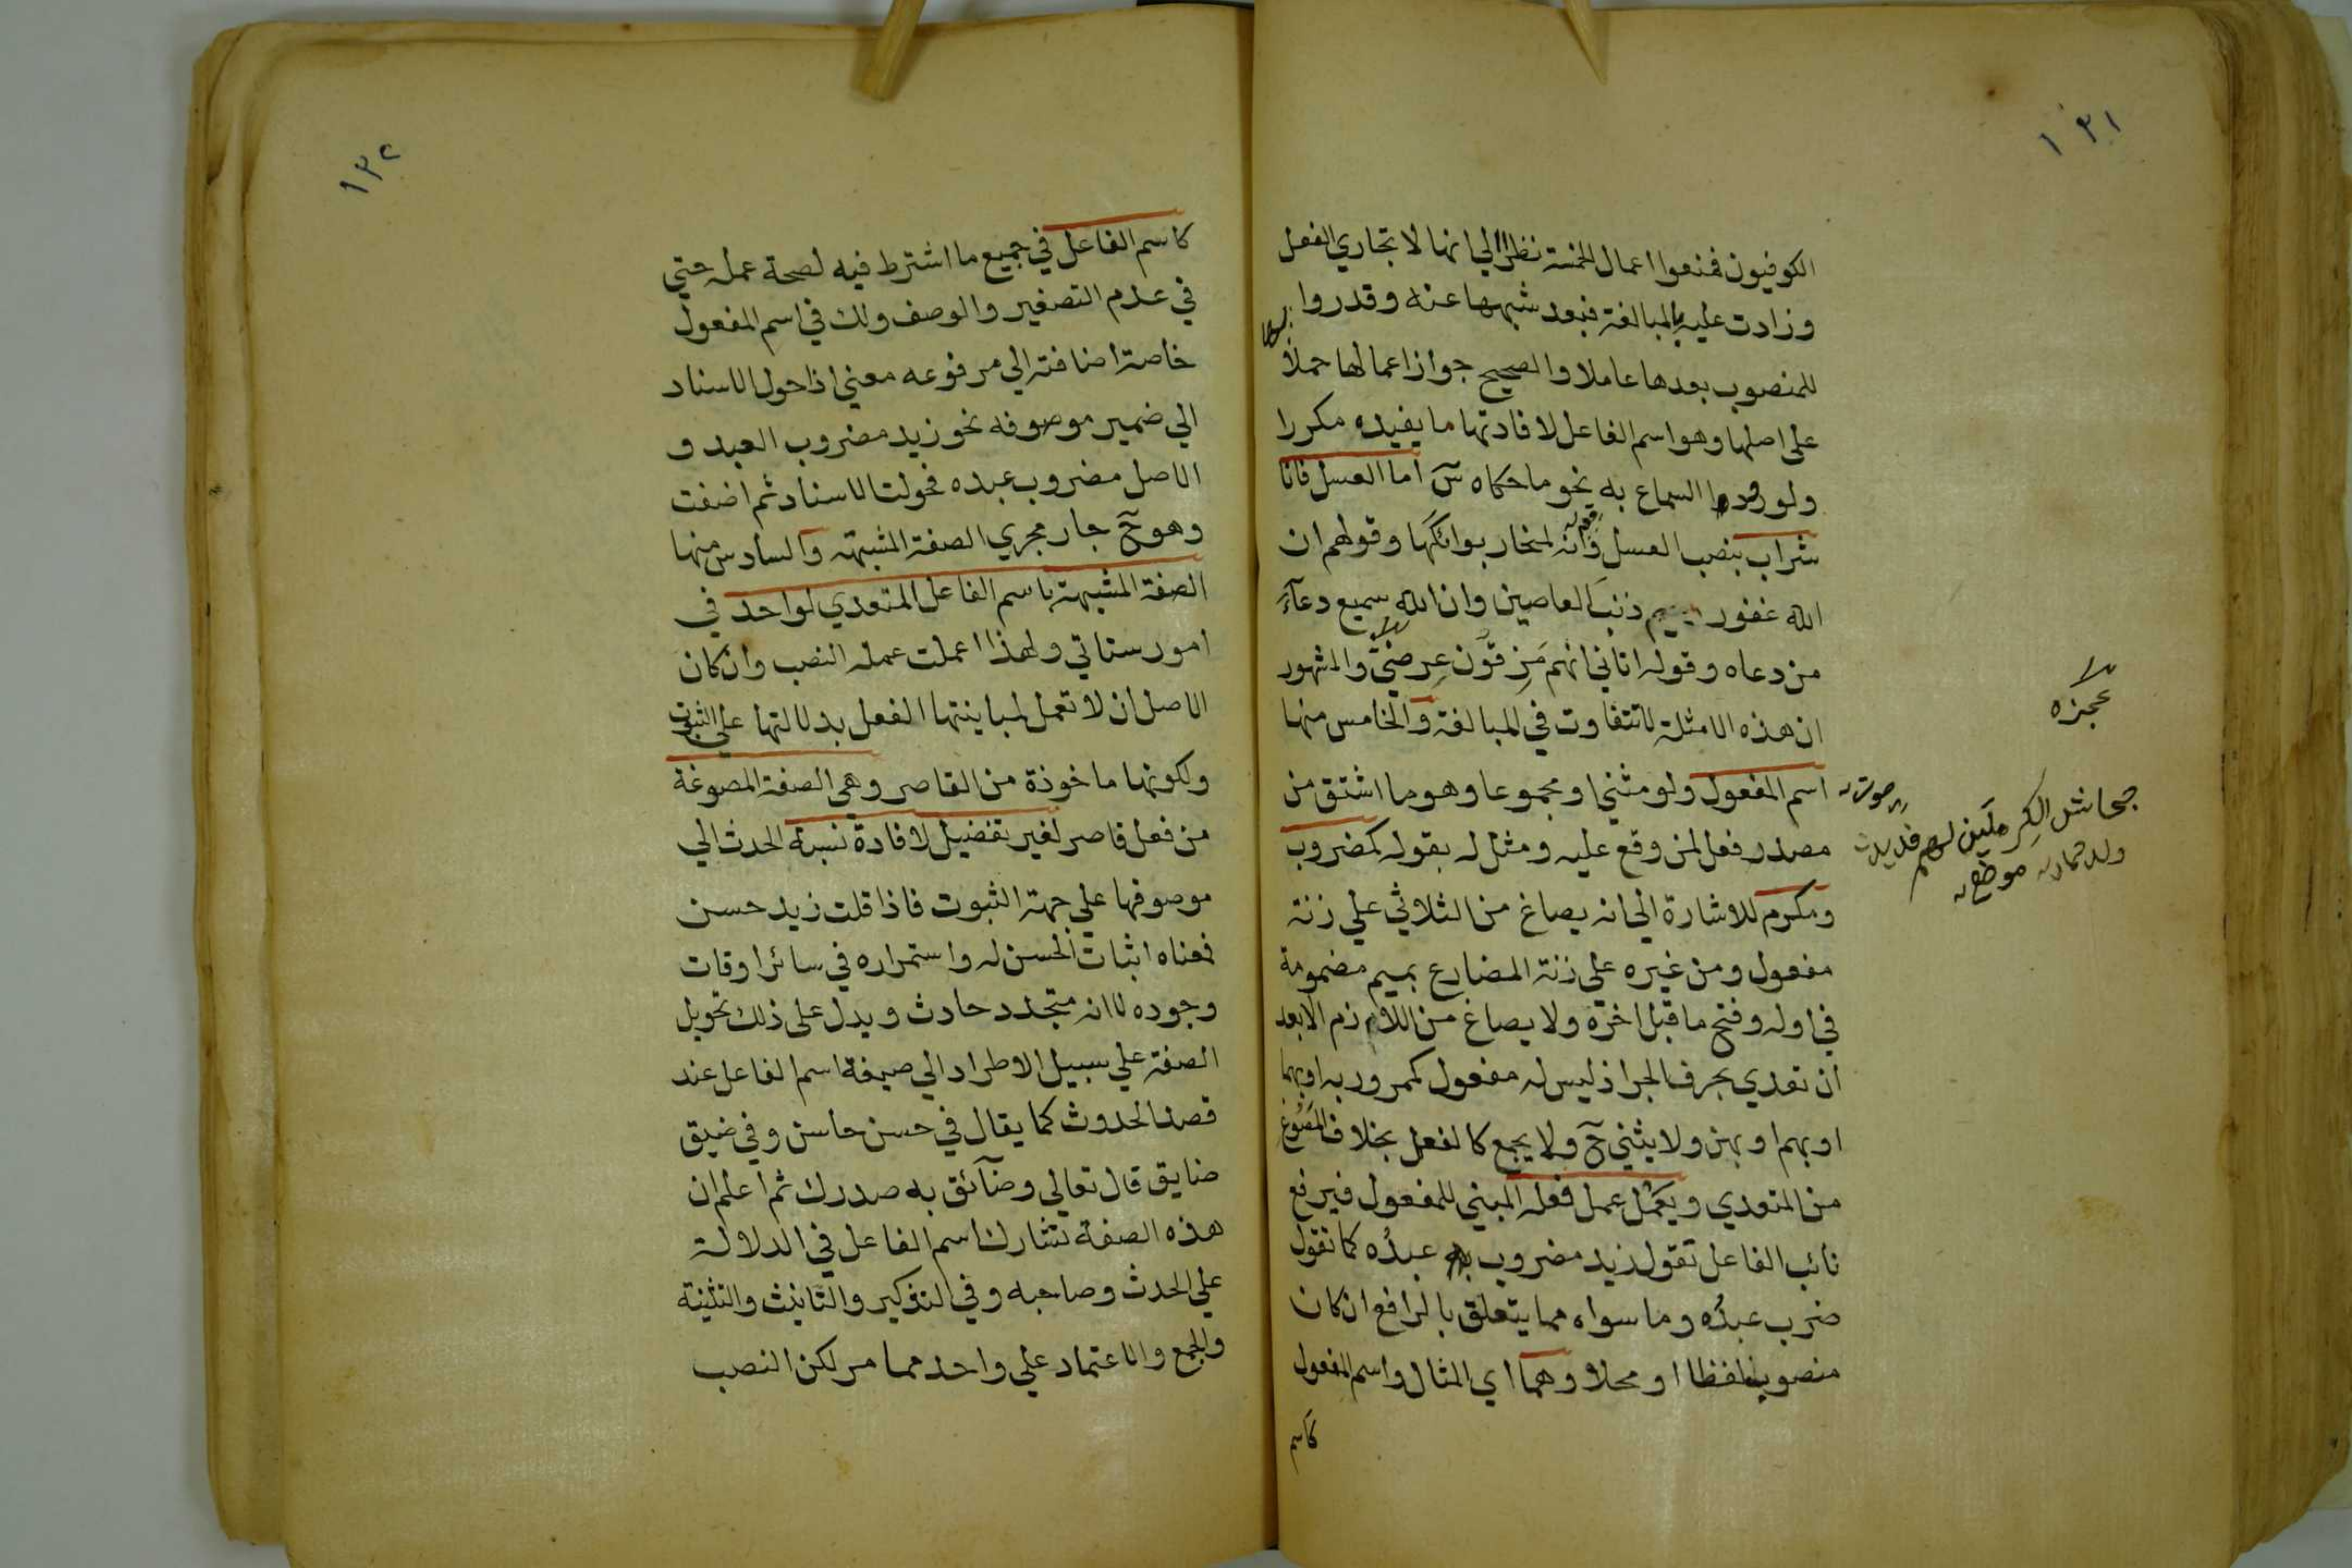 ١٣١
الكوفيون فمنعوا اعمال الخمسة نظرا الي انها لا تجاري الفعل
وزادت عليه بالمبالغة فبعد شبهها عنه وقدروا
للمنصوب بعدها عاملا والصحيح جواز اعمالها حملا
على اصلها وهو اسم الفاعل لافادتها ما يفيده مكررا
ولورود السماع به نحو ما حكاه س اما العسل فانا
شراب بنصب العسل وانه لمنحار بوائكها وقولهم ان
الله غفور ذنب العاصين وان الله سميع دعآء
من دعاه وقوله اتاني انهم مزقون عرضي والمشهور
ان هذه الامثلة لا تتفاوت في المبالغة والخامس منها
اسم المفعول ولو مثني او مجموعا وهو ما اشتق من
مصدر فعل لمن وقع عليه ومثل له بقوله كمضروب
ومكرم للاشارة الي انه يصاغ من الثلاثي علي زنة
مفعول ومن غيره علي زنة المضارع بميم مضمومة
في اوله وفتح ما قبل اخره ولا يصاغ من اللازم الا بعد
ان تعدي بحرف الجر اذ ليس له مفعول كممرور به او بها
او بهم او بهن ولا يثني ح ولا يجمع كالفعل بخلاف المصوغ
من المتعدي ويعمل عمل فعله المبني للمفعول فيرفع
نائب الفاعل تقول زيد مضروب عبدُه كما تقول
ضرب عبدُه وما سواه مما يتعلق بالرافع ان كان
منصوب لفظا او محلا وهما اي المثال واسم المفعول
كاسم
عجزه
جحاش الكرملين لهم فديد
صوت
ولد حمار موضع
١٣٢
كاسم الفاعل في جميع ما اشترط فيه لصحة عمله حتي
في عدم التصغير والوصف ولك في اسم المفعول
خاصة اضافته الي مرفوعه معني اذا حول الاسناد
الي ضمير موصوفه نحو زيد مضروب العبد و
الاصل مضروب عبده فحولت الاسناد ثم اضفت
وهو ح جار مجري الصفة المشبهة والسادس منها
الصفة المشبهة باسم الفاعل المتعدي لواحد في
امور ستاتي ولهذا اعملت عمله النصب وان كان
الاصل ان لا تعمل لمباينتها الفعل بدلالتها علي الثبوت
ولكونها ماخوذة من القاصر وهي الصفة المصوغة
من فعل قاصر لغير تفضيل لافادة نسبة الحدث الي
موصوفها علي جهة الثبوت فاذا قلت زيد حسن
فمعناه اثبات الحسن له واستمراره في سائر اوقات
وجوده لا انه متجدد حادث ويدل على ذلك تحويل
الصفة علي سبيل الاطراد الي صيغة اسم الفاعل عند
قصد الحدوث كما يقال في حسن حاسن وفي ضيق
ضايق قال تعالي وضآئق به صدرك ثم اعلم ان
هذه الصفة تشارك اسم الفاعل في الدلالة
علي الحدث وصاحبه وفي التذكير والتانيث والتثنية
والجمع والاعتماد علي واحد مما مر لكن النصب